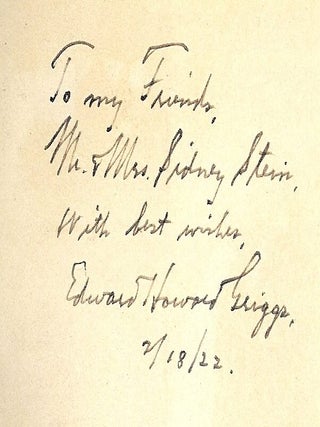 To my Friends,
Mr. & Mrs. Sidney Stein,
With best wishes,
Edward Howard Griggs,
2/18/22.